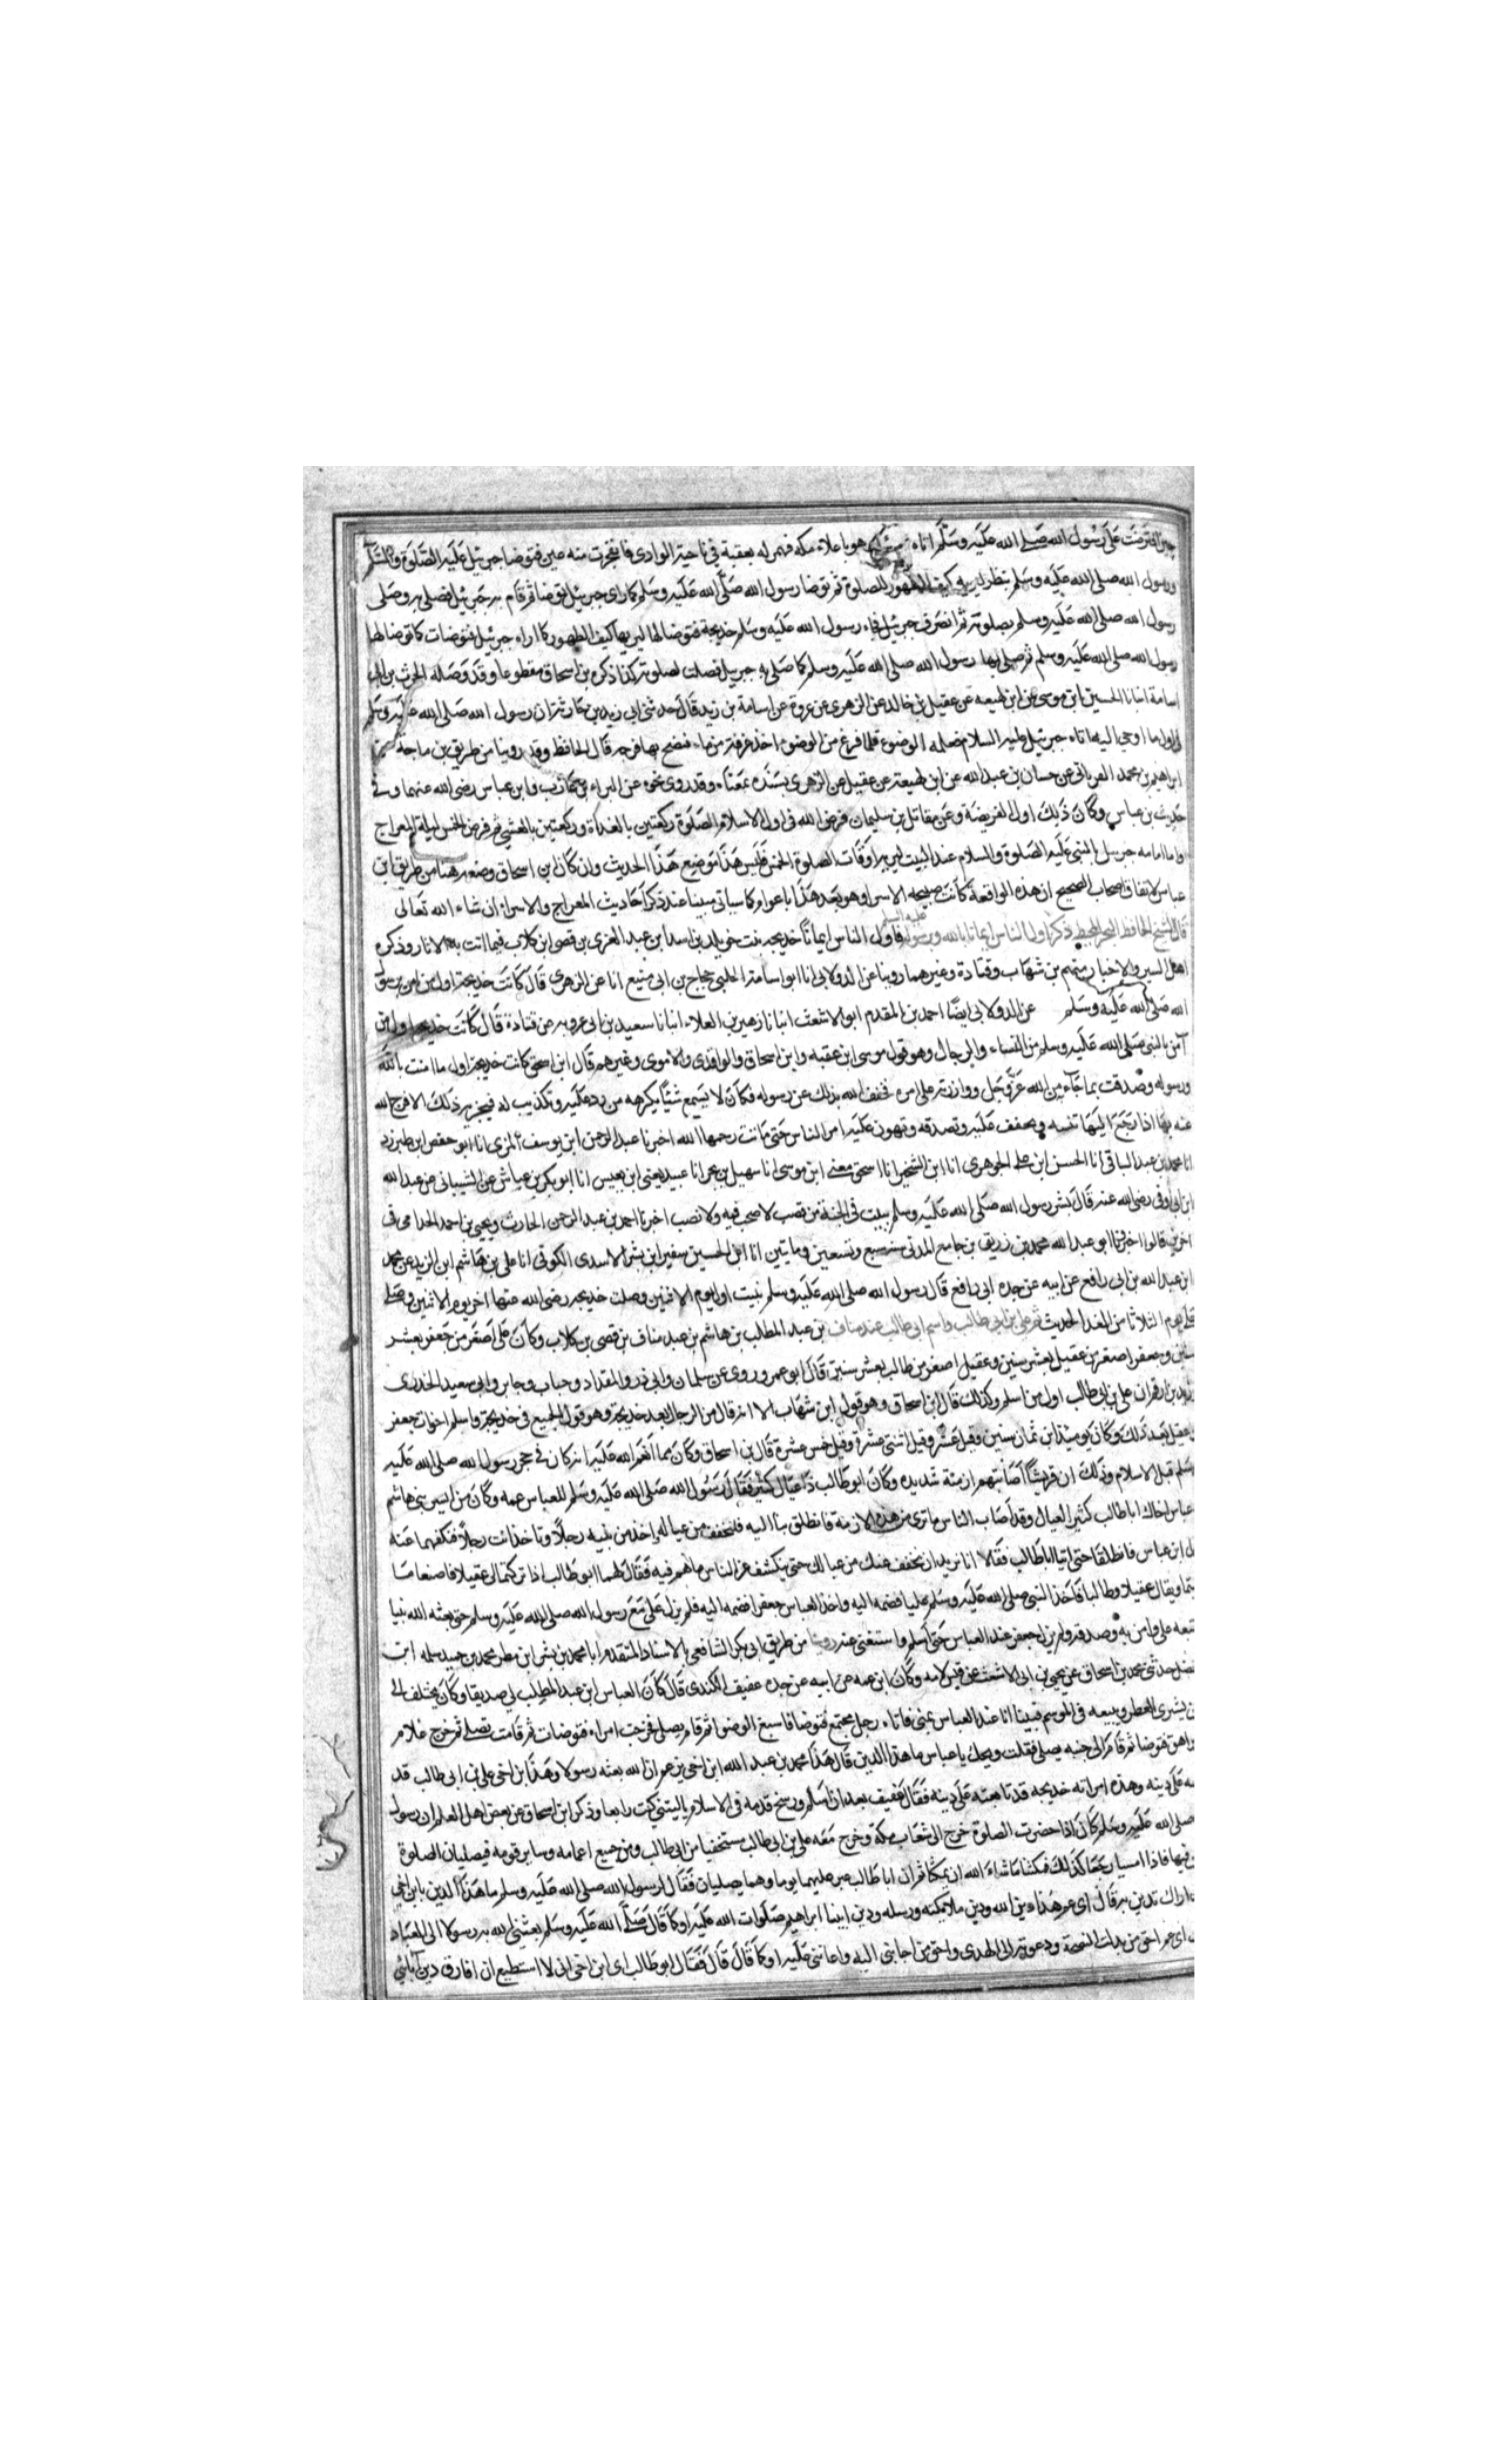 حين افترضت على رسول الله صلى الله عليه وسلم اتاه وهو باعلاء مكه فهمز له بعقبه في ناحية الوادي فانفجرت منه عين فتوضا جبرئيل عليه الصلوة والسلام
ورسول الله صلى الله عليه وسلم ينظر ليريه كيف الطهور للصلوة ثم توضا رسول الله صلى الله عليه وسلم كما راى جبرئيل توضا ثم قام به جبرئيل فصلى به وصلى
رسول الله صلى الله عليه وسلم بصلوته ثم انصرف جبرئيل فجاء رسول الله عليه وسلم خديجة فتوضا لها ليريها كيف الطهور كما اراه جبرئيل فتوضات كما توضا لها
رسول الله صلى الله عليه وسلم ثم صلى بها رسول الله صلى الله عليه وسلم كما صلى به جبريل فصلت لصلوته كذا ذكره بن اسحاق مقطوعا وقد وصله الحرث بن ابى
اسامة انبانا الحسين ابن موسى عن ابن لهيعه عن عقيل بن خالد عن الزهرى عن عروة عن اسامة بن زيد قال حدثنى ابى زيد بن حارثة ان رسول الله صلى الله عليه وسلم
فى اول ما اوحى اليه اتاه جبرئيل عليه السلام فعلمه الوضوء فلما فرغ من الوضوء اخذ غرفة من ماء فنضح بها فرجه قال الحافظ وقد روينا من طريق بن ماجة
ابراهيم بن محمد الفريابى عن حسان بن عبد الله عن ابن لهيعة عن عقيل عن الزهرى بسنده بمعناه وقد روى نحوه عن البراء بن عازب وابن عباس رضى الله عنهما وفى
حديث بن عباس وكان ذلك اول الفريضة وعن مقاتل بن سليمان فرض الله فى اول الاسلام الصلوة ركعتين بالغداة وركعتين بالعشي ثم فرض الخمس ليلة المعراج
واما امامه جبريل بالنبى عليه الصلوة والسلام عند البيت ليريه اوقات الصلوة الخمس فليس هذا موضع هذا الحديث وان كان بن اسحاق وضعه هنا من طريق ابن
عباس لاتفاق اصحاب الصحيح ان هذه الواقعة كانت صبيحه الاسرا وهو بعد هذا باعوام كما سياتى مبينا عند ذكر احاديث المعراج والاسراء ان شاء الله تعالى
قال الشيخ الحافظ البحر المحيط ذكر اول الناس ايمانا بالله وبرسوله عليه السلم فاول الناس ايمانا خديجه بنت خويلد بن اسد ابن عبد العزى بن قصى ابن كلاب فيما اتت به الاثار وذكره
اهل السير والاخبار منهم بن شهاب وقتادة وغيرهما روينا عن الدولابى انا ابو اسامة الحلبى حجاج بن ابى منيع انا عن الزهرى قال كانت خديجة اول من امن برسول
الله صلى الله عليه وسلم عن الدولابى ايضًا احمد بن المقدم ابو الاشعث انبانا زهير بن العلاء انبانا سعيد بن ابى عروبه عن قتادة قال كانت خديجه اول من
آمن بالنبى صلى الله عليه وسلم من النساء والرجال وهو قول موسى ابن عقبه وابن اسحاق والواقدى والاموى وغيرهم قال ابن اسحق كانت خديجة اول ما امنت بالله
ورسوله وصدقت بما جاء من الله عز وجل ووازرته على امره فخفف الله بذلك عن رسوله فكان لا يسمع شيئًا يكرهه من رد عليه وتكذيب له فيحزنه ذلك الا فرج الله
عنه بها اذا رجع اليها تثبته وتخفف عليه وتصدقه وتهون عليه امر الناس حتى ماتت رحمها الله اخبرنا عبد الرحمن ابن يوسف المزى انا ابو حفص ابن طبرزد
انا محمد بن عبد الباقى انا الحسن ابن على الجوهرى انا ابن الشخير انا اسحق يعنى ابن موسى انا سهيل بن بحر انا عبيد يعنى ابن يعيس انا ابو بكر بن عياش عن الشيبانى عن عبد الله
ابن ابى اوفى رضى الله عنه قال بشر رسول الله صلى الله عليه وسلم ببيت فى الجنة من قصب لا صخب فيه ولا نصب اخبرنا احمد بن عبد الرحمن الحارث ويحيى بن احمد الجذامى فى
اخرين قالوا اخبرنا ابو عبد الله محمد بن زريق بن جامع المدنى سنه سبع وتسعين ومايتين انا ابن الحسين سفير ابن بشر الاسدى الكوفى انا على بن هاشم ابن اليزيد عن محمد
ابن عبد الله بن ابى رافع عن ابيه عن جده ابى رافع قال رسول الله صلى الله عليه وسلم نبيت اول يوم الاثنين وصلت خديجه رضى الله عنها اخر يوم الاثنين وصلى
على يوم الثلاثا من الغد الحديث ثم على بن ابى طالب واسم ابى طالب عبد مناف بن عبد المطلب بن هاشم بن عبد مناف بن قصى بن كلاب وكان على اصغر من جعفر بعشر
سنين وجعفر اصغر من عقيل بعشر سنين وعقيل اصغر من طالب بعشر سنين قال ابو عمر وروى عن سلمان وابى ذر والمقداد وخباب وجابر وابى سعيد الخدرى
وزيد بن ارقم ان على بن ابى طالب اول من اسلم وكذلك قال ابن اسحاق وهو قول ابن شهاب الا انه قال من الرجال بعد خديجة وهو قول الجميع فى خديجة واسلم اخوات جعفر
وعقيل بعد ذلك وكان يوميذ ابن ثمان سنين وقيل عشر وقيل اثنتى عشرة وقيل خمس عشرة قال بن اسحاق وكان مما انعم الله عليه انه كان فى حجر رسول الله صلى الله عليه
وسلم قبل الاسلام وذلك ان قريشًا اصابتهم ازمنة شديده وكان ابو طالب ذا عيال كثير فقال رسول الله صلى الله عليه وسلم للعباس عمه وكان من ايسر بنى هاشم
عباس اخاك ابا طالب كثير العيال وقد اصاب الناس ما ترى من هذه الازمنة فانطلق بنا اليه فلنخفف من عياله اخذ من بنيه رجلاً وتاخذ انت رجلاً فنكفهما عنه
ل ابن عباس فانطلقا حتى اتيا ابا طالب فقالا انا نريد ان نخفف عنك من عيالك حتى ينكشف عن الناس ما هم فيه فقال لهما ابو طالب اذا تركتما لى عقيلا فاصنعا ما
شئتما ويقال عقيلا وطالبا فاخذ النبى صلى الله عليه وسلم عليا فضمه اليه واخذ العباس جعفرا فضمه اليه فلم يزل على مع رسول الله صلى الله عليه وسلم حتى بعثه الله نبيا
تبعه على وامن به وصدقه ولم يزل جعفر عند العباس حتى اسلم واستغنى عنه روينا من طريق ابى بكر الشافعى بالاسناد المتقدم انا محمد بن بشر ابن مطر محمد بن حميد سلمه ابن
الفضل حدثنى محمد بن اسحاق عن يحيى بن ابى الاشعث عن قيس لامه وكان ابن عمه عن ابيه عن جده عفيف الكندى قال كان العباس ابن عبد المطلب لى صديقا وكان يختلف الى
يشترى العطر ويبيعه فى الموسم فبينا انا عند العباس بمنى فاتاه رجل مجتمع فتوضا فاسبغ الوضوا ثم قام يصلى فخرجت امراه فتوضات ثم قامت تصلى ثم خرج غلام
راهق فتوضا ثم قام الى جنبه يصلى فقلت ويحك يا عباس ما هذا الدين قال هذا محمد بن عبد الله ابن اخى يزعم ان الله بعثه رسولا وهذا ابن اخى على بن ابى طالب قد
على دينه وهذه امراته خديجه قد تابعته على دينه فقال عفيف بعد ان اسلم ورسخ قدمه فى الاسلام ياليتنى كنت رابعا وذكر ابن اسحاق عن بعض اهل العلم ان رسول
صلى الله عليه وسلم كان اذا حضرت الصلوة خرج الى شعاب مكة وخرج معه على بن ابى طالب مستخفيا من ابى طالب ومن جميع اعمامه وساير قومه فيصليان الصلوة
فيها فاذا امسيا رجعا كذلك فمكثا ما شاء الله ان يمكثا ثم ان ابا طالب عبر عليهما يوما وهما يصليان فقال لرسول الله صلى الله عليه وسلم ما هذا الدين يا ابن اخى
اراك تدين به قال اى عم هذا دين الله ودين ملايكته ورسله ودين ابينا ابراهيم صلوات الله عليه او كما قال صلى الله عليه وسلم بعثنى الله به رسولا الى العباد
اى عم احق من بذلت النصيحة ودعوته الى الهدى واحق من اجابنى اليه واعاننى عليه او كما قال قال فقال ابو طالب اى ابن اخى انى لا استطيع ان افارق دين آبائي